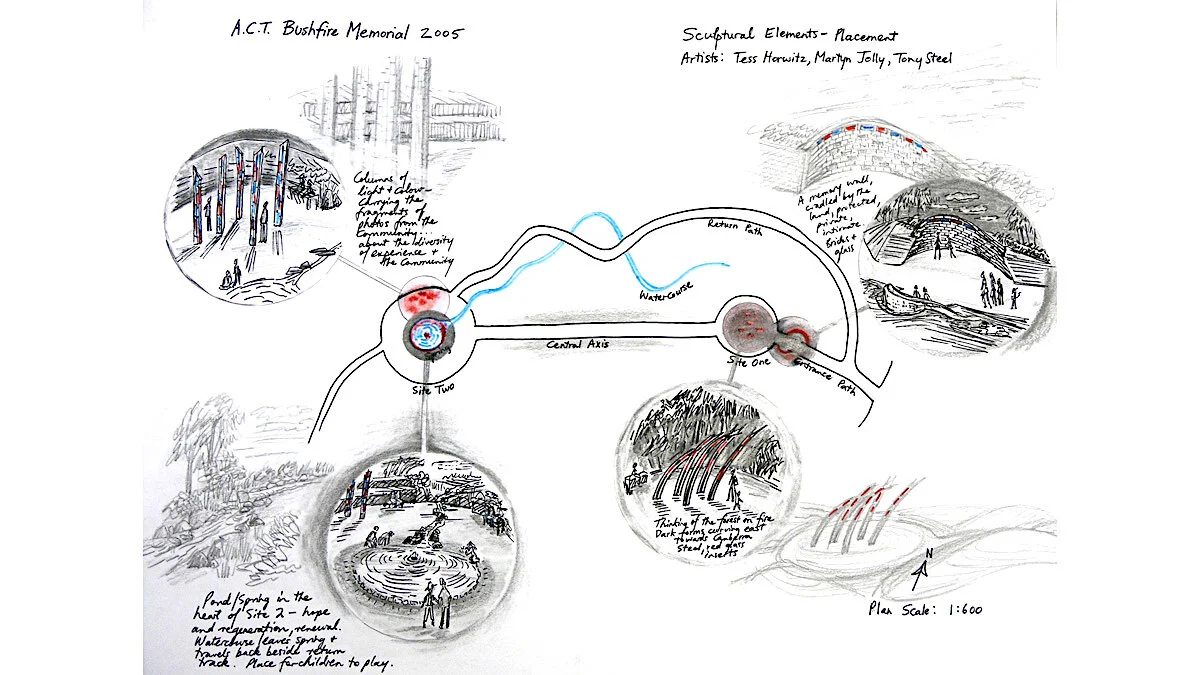 A.C.T. Bushfire Memorial 2005
Sculptural Elements - Placement
Artists: Tess Horwitz, Martyn Jolly, Tony Steel
Columns of
light + colour -
carrying the
fragments of
photos from the
community...
about the diversity
of experience +
the community
A memory wall,
cradled by the
land, protected,
private,
intimate.
Bricks +
glass
Return Path
Watercourse
Central Axis
Spring
Site Two
Site One
Entrance Path
Thinking of the forest on fire
Dark forms curving east
towards Canberra
Steel, red glass
inserts
Pond/Spring in the
heart of Site 2 - hope
and regeneration, renewal.
Watercourse leaves spring +
travels back beside return
track. Place for children to play.
N
Plan Scale: 1:600